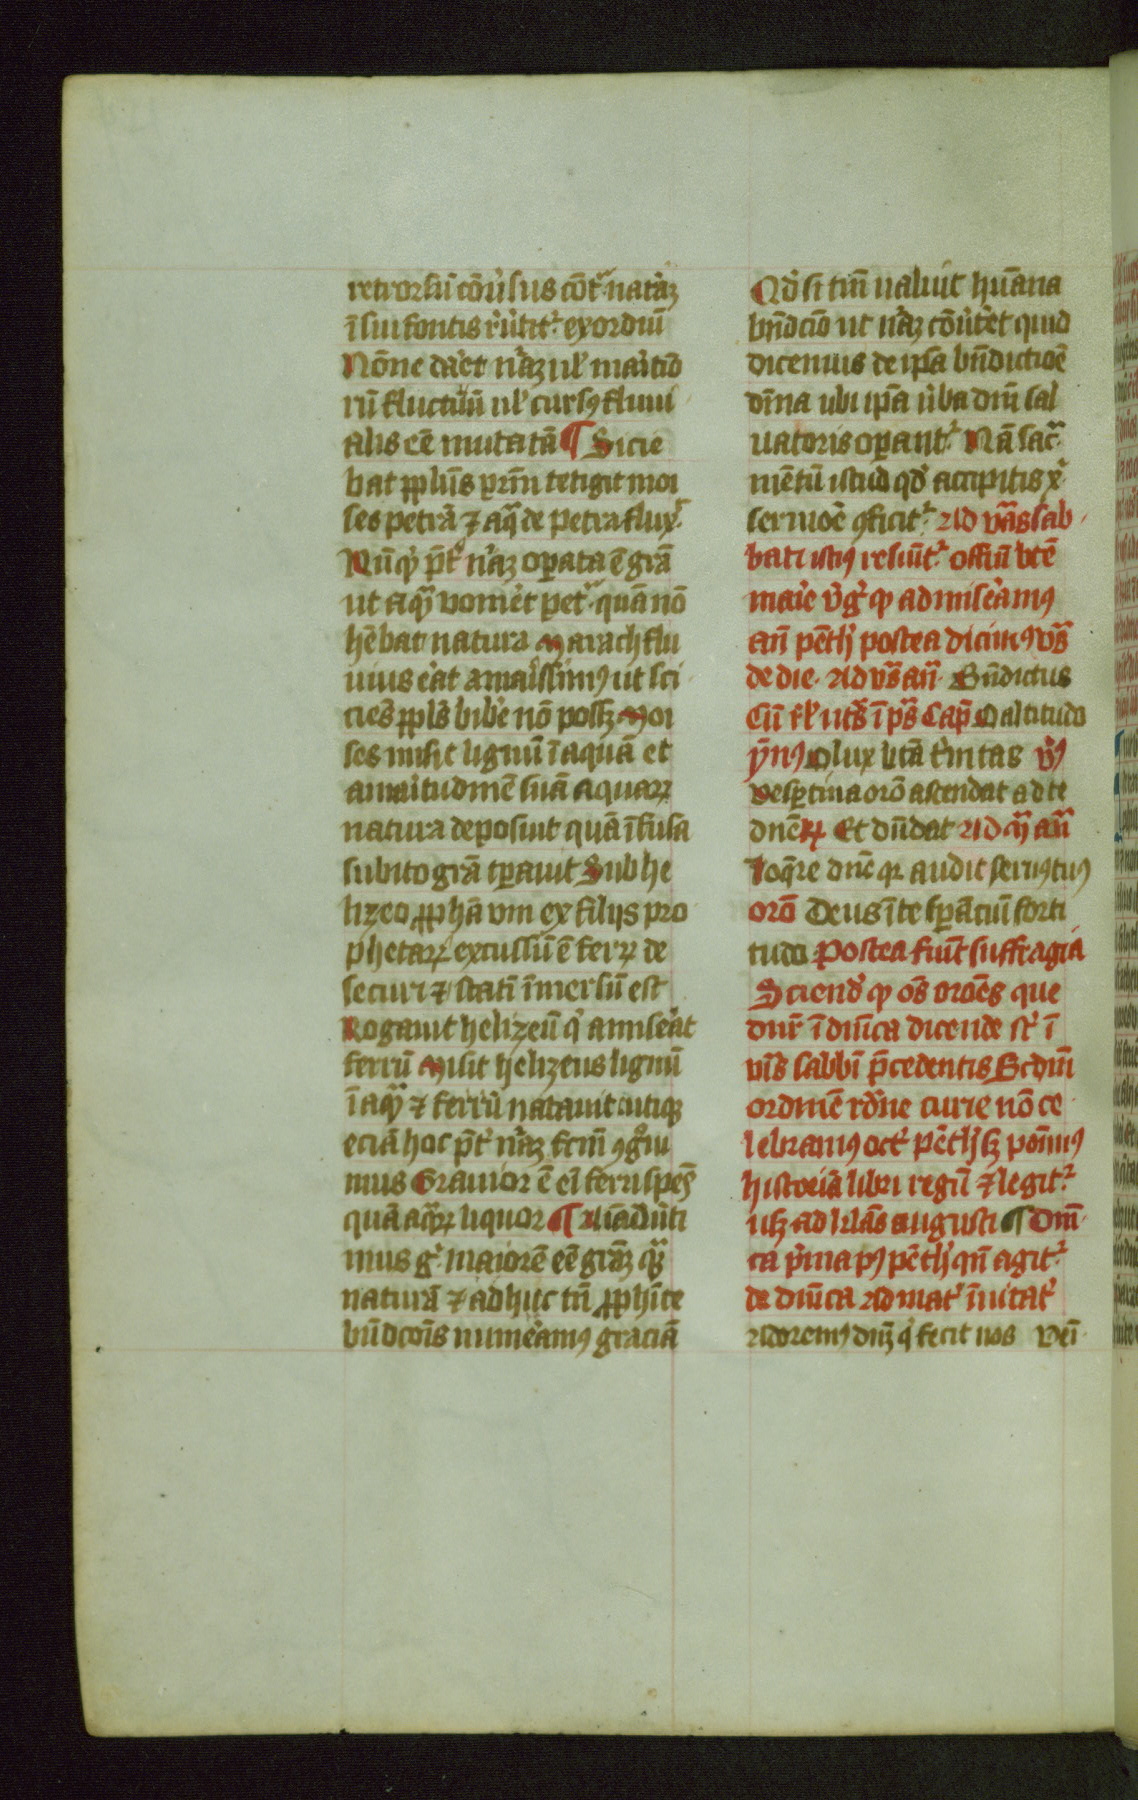 retrorsū cōu̓sus cōtᷓ natᷓaꝫ
ī sui fontis ru̓titᷣ exordiū
Nōne daret nᷓaꝫ ul̓ mariti⁹
rū fluctuū ul̓ cursꝰ fluui
alis eē mutatā ¶ Sicie
bat ppl̓us prīn tetigit moi
ses petrā ⁊ aq̄ de petra flux̓
Nūqͥ pt̄ nᷓaꝫ oꝑata ē grā
ut aqᷓ uomēt petᷓ quā nō
hēbat natura Marach flu
uius erat amarissimꝰ ut sci
cies ppl̓s bibe̓ nō posꝫ Moi
ses misit lignū ī aquā et
amaritudinē suā aquarꝝ
natura deposuit quā īfusa
subito grā tꝑauit Sub he
lizeo ꝓphā vni ex filijs pro
phetarꝝ excussū ē ferꝝ de
securi ⁊ statī īmersū est
Rogauit helizeū qͥ amise̓at
ferrū Misit helizeus lignū
ī aqᷓ ⁊ ferrū natauit utiqꝫ
eciā hoc pt̄ nᷓaꝫ fcm̄ ꝯgͦui
mus Grauior ē ei ferri spēs
quā aqͣꝝ liquor ¶ Aīadūti
mus gͦ maiorē eē grāꝫ qᷓ
naturā ⁊ adhuc tn̄ ꝓphīce
bn̄dcōis nume̓amꝰ graciā
Qd̓ si tm̄ ualuit hūana
bn̄dcio ut nᷓaꝫ cōu̓tēt quid
dicemus de ipsa bn̄dictiōe
dīna ubi ipā u̓ba dn̄i sal
uatoris oꝑantᷣ Nā sacᷓ
mētū istud qd̓ accipitis xͥ
sermoē ꝯficitᷣ Ad vās sab
bati istiꝰ resūtᷣ offiū bt̄e
marie v̓gͥ ꝙ admise̓amꝰ
an̄ pēth̓ postea dicitᷣ vs̄
de die. Ad vs̄ an̄ Bn̄dictus
Cū rl̓ ut s̄ ī ps̄ Cap̄ O altitudo
ȳnꝰ O lux bt̄a t̓nitas v̓ꝰ
Vesꝑtina orō ascendat ad te
dn̄e ꝶ Et dn̄dat Ad m̄ an̄
Loq̄re dn̄e qꝛ audit seruꝰ tuꝰ
orō Deus ī te sꝑātiū forti
tudo Postea fiūt suffragia
Sciend̓ ꝙ oēs oroēs que
dn̄r ī dn̄ica dicende st̓ ī
vīs sabbī p̄cedentis Scdm̄
ordinē rōne curie nō ce
lebramꝰ oct̓ pēth̓ sꝫ ponimꝰ
historiā libri regū ⁊ legitᷣ
usꝫ ad kl̓as augusti ¶ Dn̄i
ca p̓ma pꝰ pēth̓ qn̄ agitᷣ
de dn̄ica Ad mat̓ īuitat̓
Adoremꝰ dn̄ꝫ qͥ fecit nos Vēi